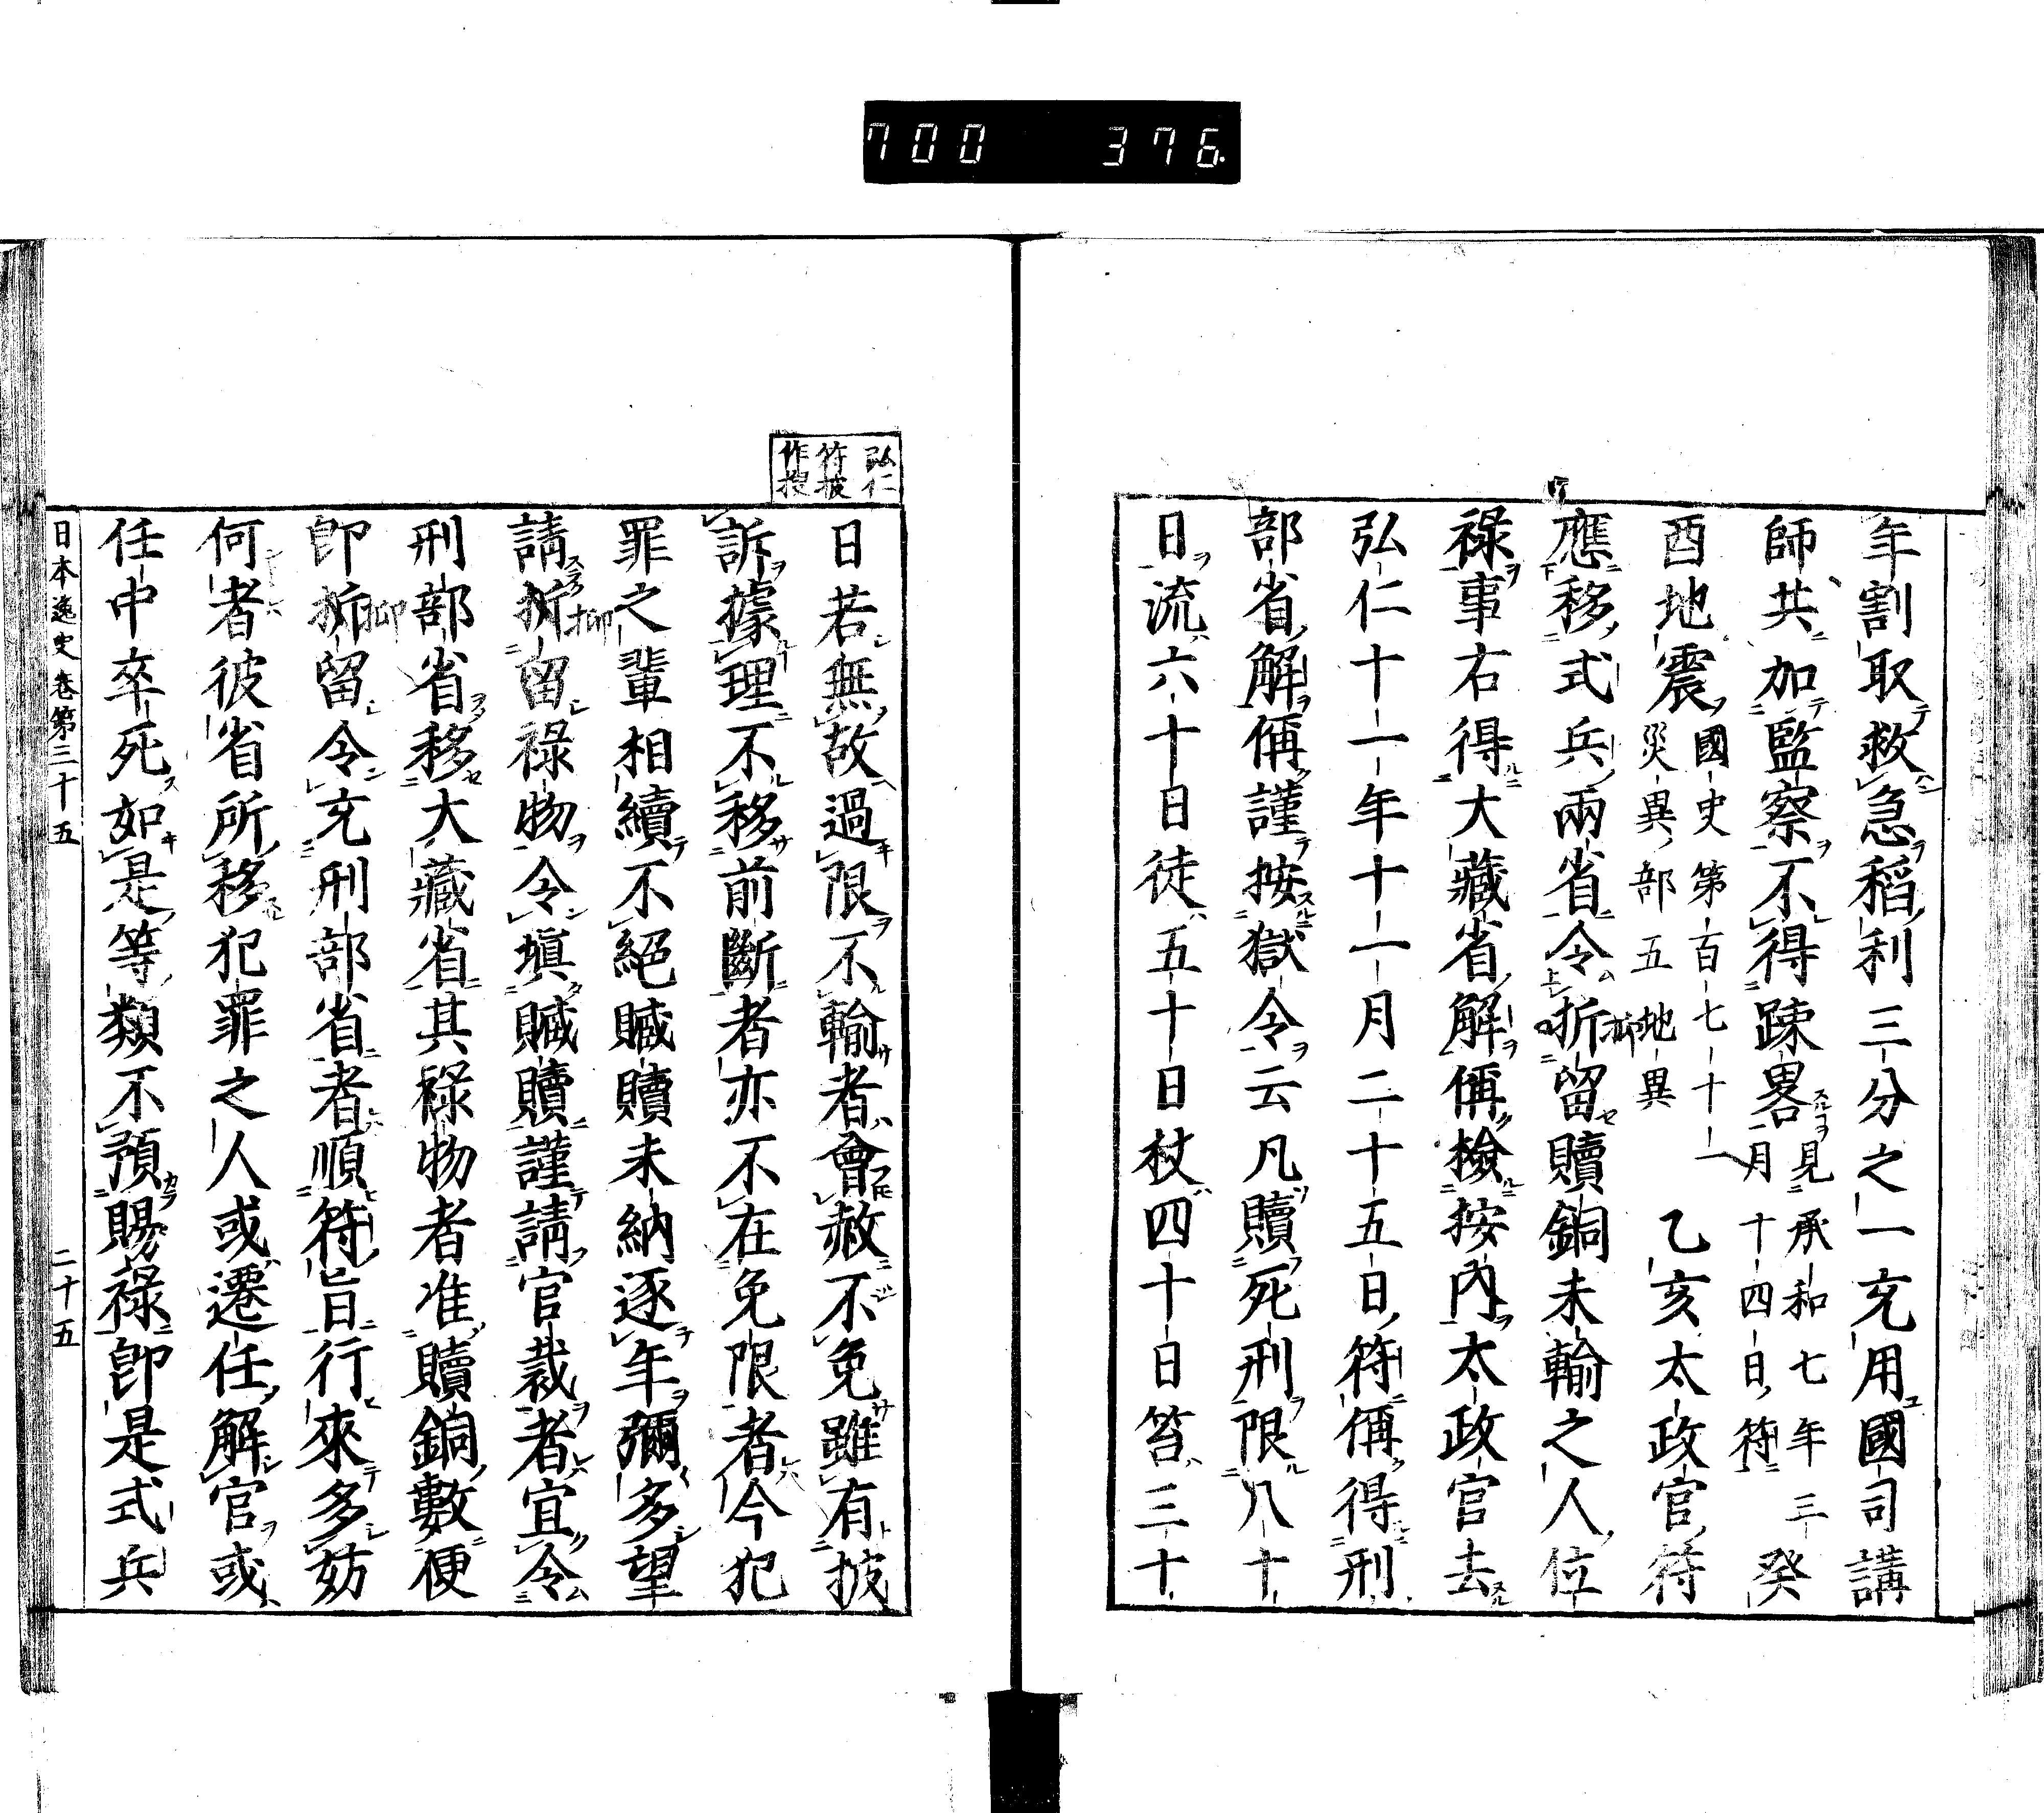 700 376
年割取救急稻利三分之一充用國司講
師共加監察不得踈畧見承和七年三
月十四日符癸
酉地震國史第百七十一
災異部五地異
乙亥太政官符
應移式兵兩省令折留贖銅未輸之人位
抑
祿事右得大藏省解偁檢按內太政官去
弘仁十一年十一月二十五日符偁得刑
部省解偁謹按獄令云凡贖死刑限八十
日流六十日徒五十日杖四十日笞三十
弘仁
符披
作捜
日若無故過限不輸者會赦不免雖有披
訴據理不移前斷者亦不在免限者今犯
罪之輩相續不絕贓贖未納逐年彌多望
請折留祿物令塡贓贖謹請官裁者宜令
抑
刑部省移大藏省其祿物者准贖銅數便
卽折留令充刑部省者順符旨行來多妨
抑
何者彼省所移犯罪之人或遷任解官或
任中卒死如是等類不預賜祿卽是式兵
日本逸史卷第三十五
二十五